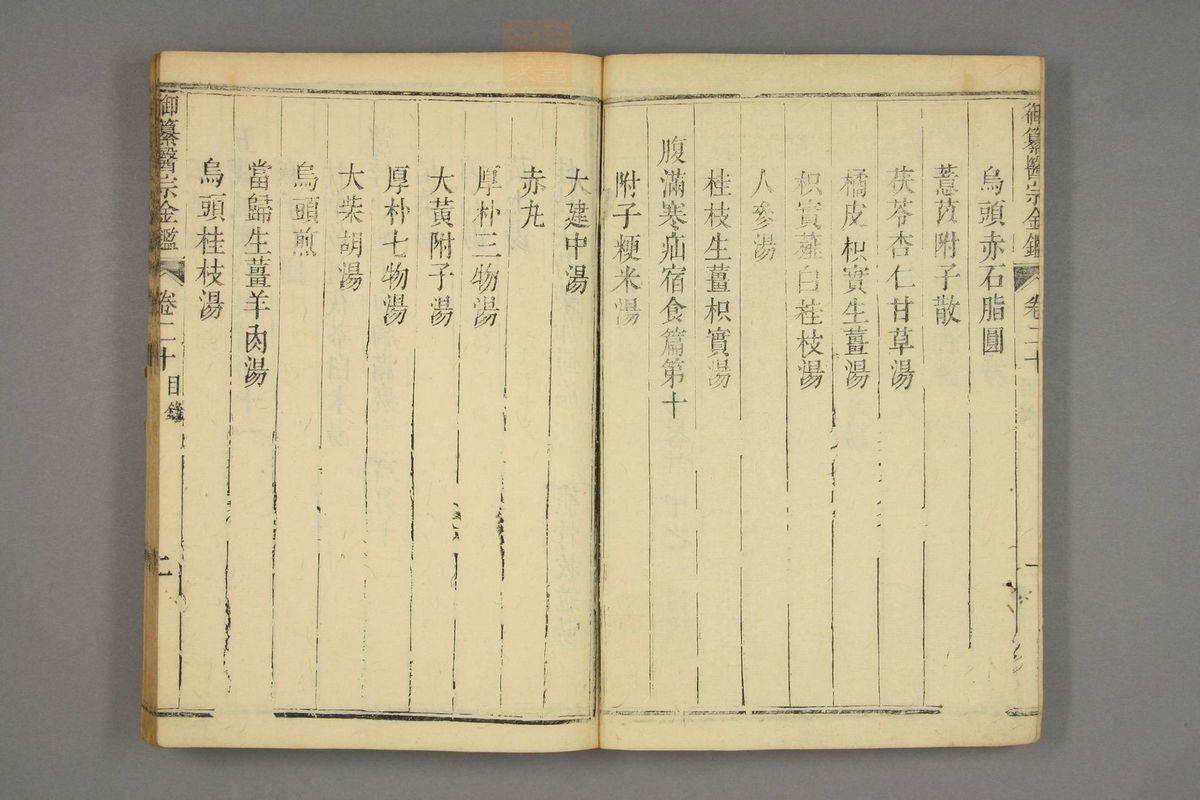 御纂醫宗金鑑 卷二十 目錄 一
烏頭赤石脂圓
薏苡附子散
茯苓杏仁甘草湯
橘皮枳實生薑湯
枳實薤白桂枝湯
人參湯
桂枝生薑枳實湯
腹滿寒疝宿食篇第十
附子粳米湯
大建中湯
赤丸
厚朴三物湯
大黃附子湯
厚朴七物湯
大柴胡湯
烏頭煎
當歸生薑羊肉湯
烏頭桂枝湯
御纂醫宗金鑑 卷二十 目錄 二